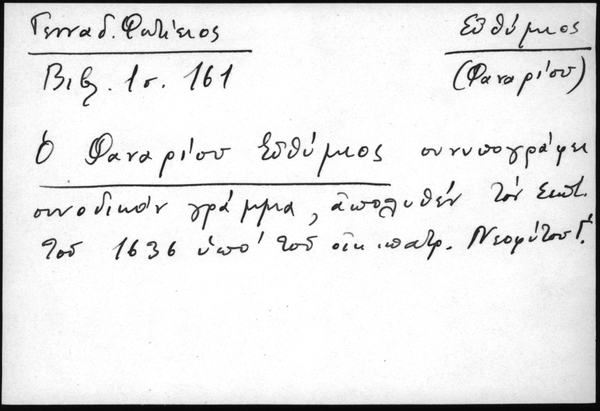 Γενναδ. Φωτίειος
Εὐθύμιος
Βιβλ. 1 σ. 161
(Φαναρίου)
Ὁ Φαναρίου Εὐθύμιος συνυπογράφει
συνοδικόν γράμμα, ἀπολυθέν τόν Σεπτ.
τοῦ 1636 ὑπό τοῦ οἰκ. πατρ. Νεοφύτου Γ΄.